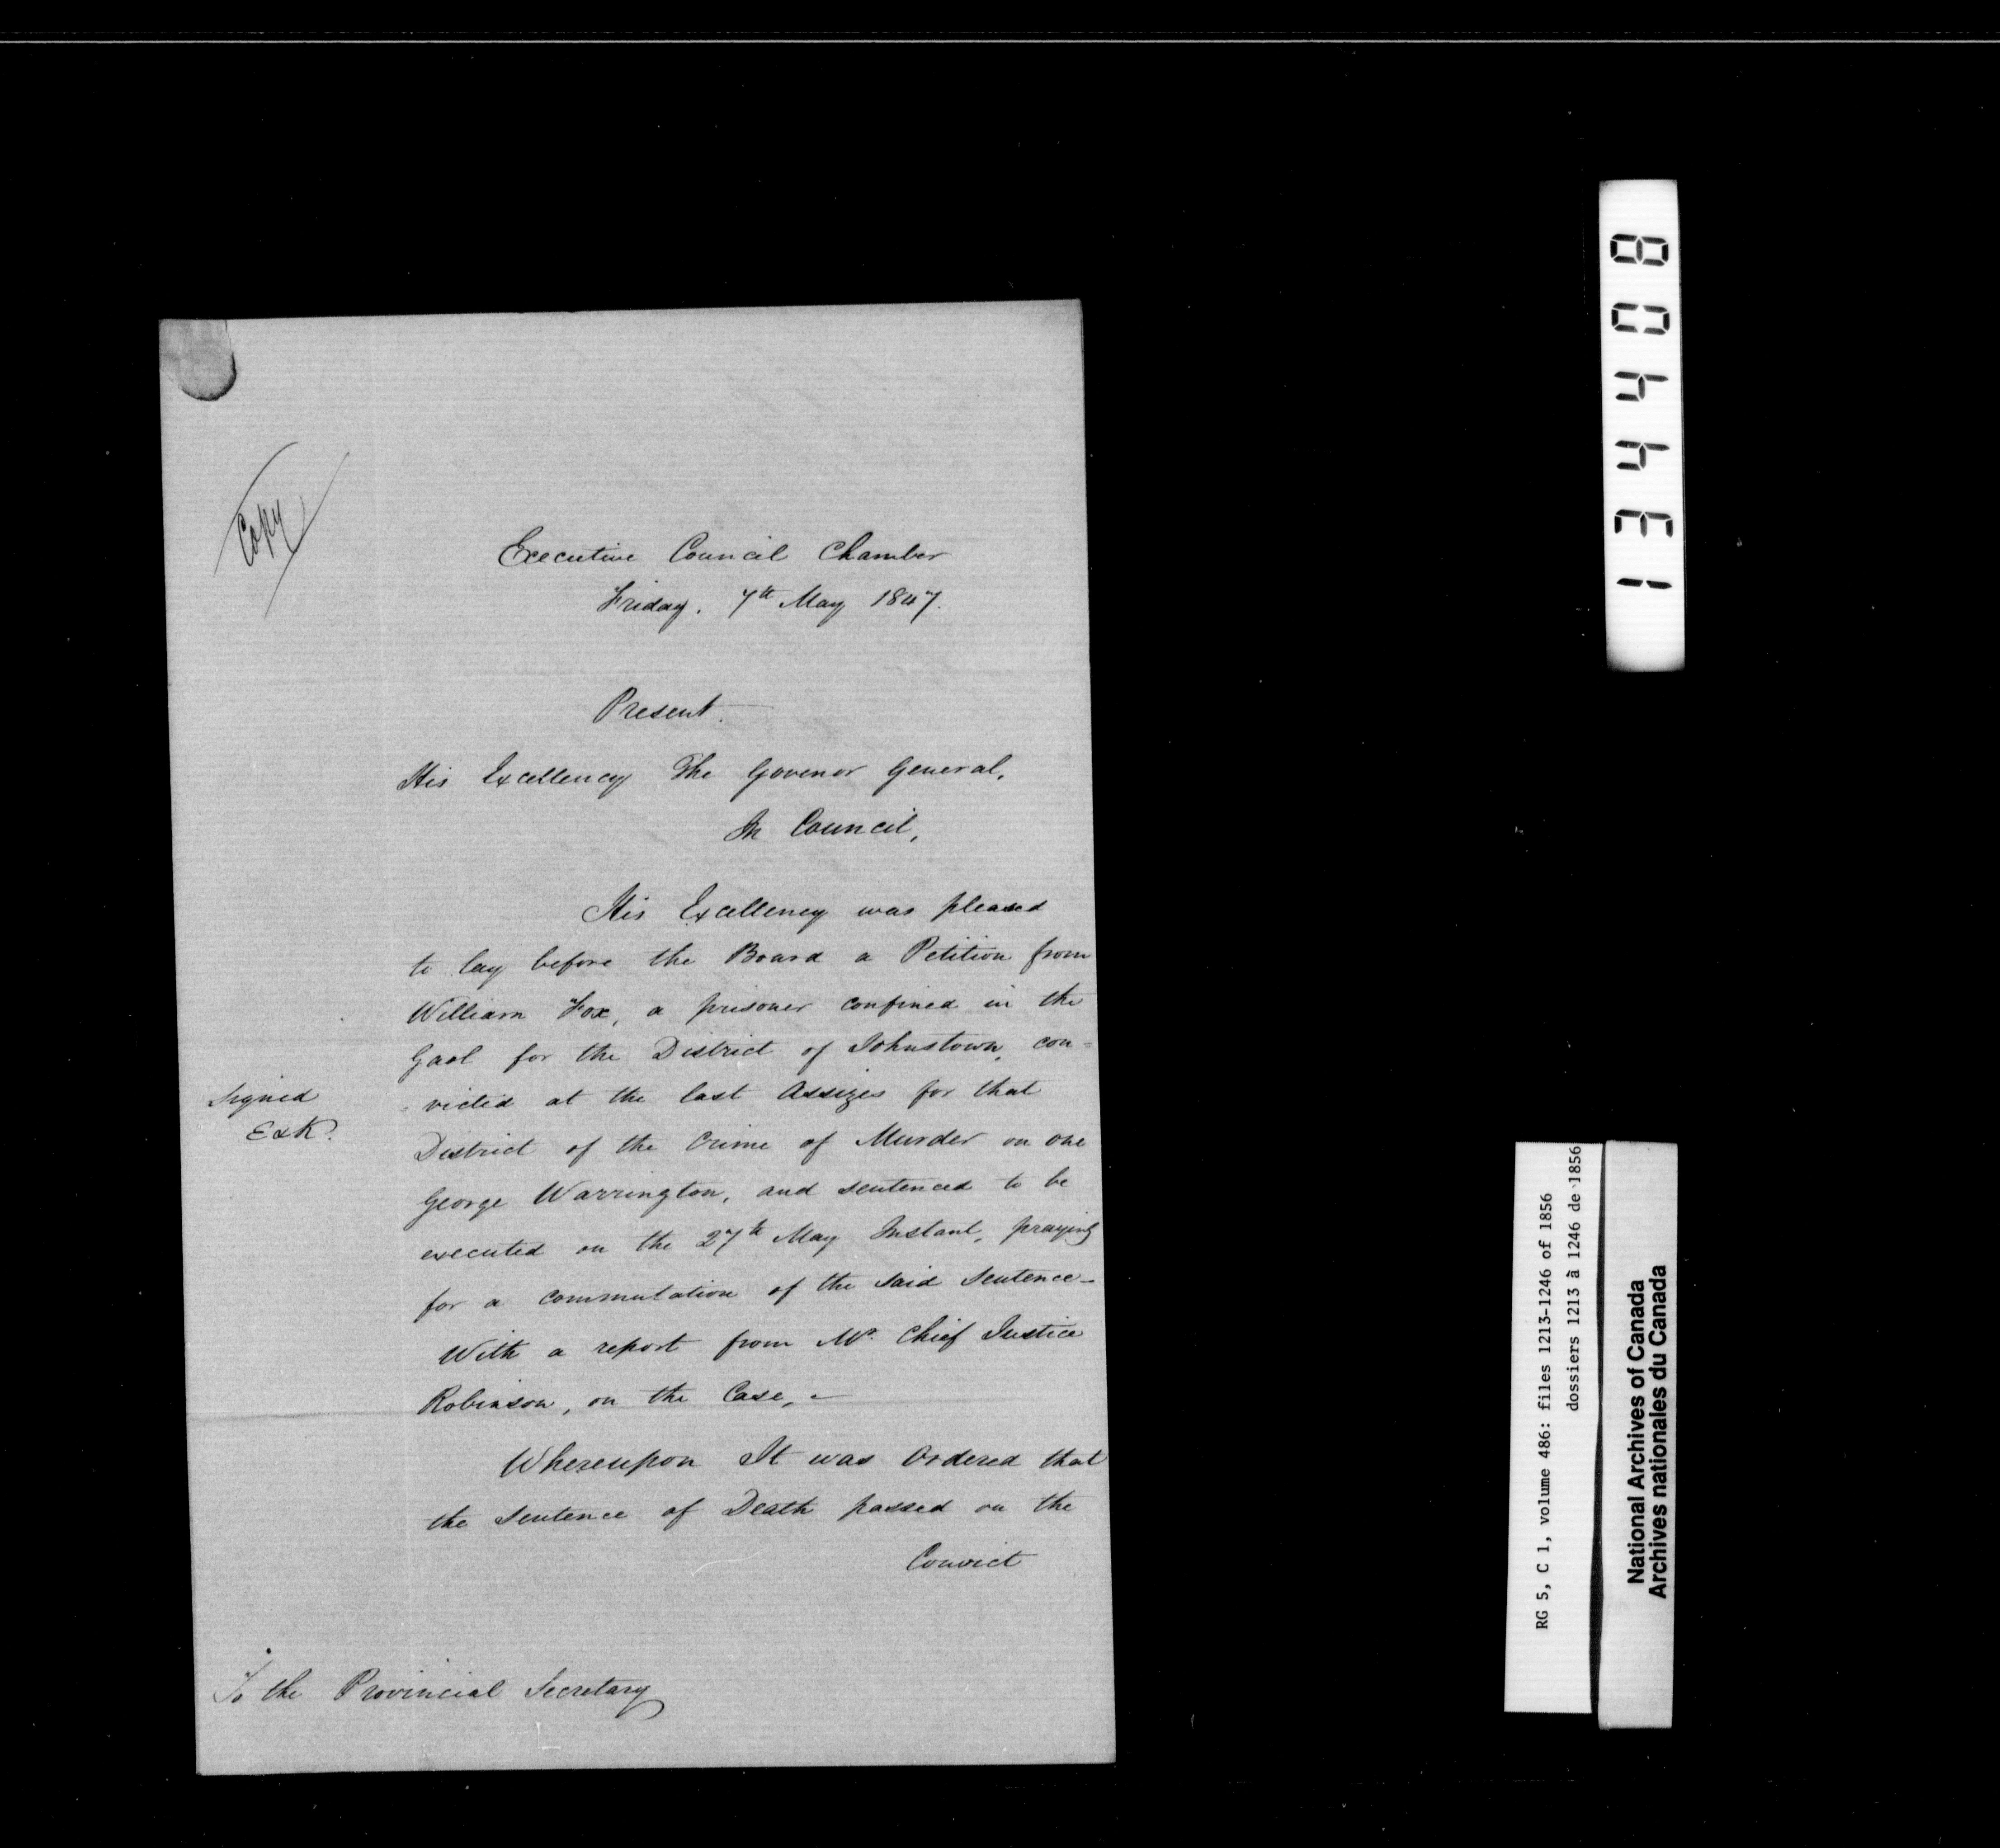 Copy
Executive Council Chamber
Friday. 7th May 1847.
Present.
His Excellency The Govenor General,
In Council,
His Excellency was pleased
to lay before the Board a Petition from
William Fox, a prisoner confined in the
Gaol for the District of Johnstown, con=
victed at the last Assizes for that
District of the Crime of Murder on one
George Warrington, and sentenced to be
executed on the 27th May Instant, praying
for a commutation of the said Sentence_
With a report from Mr. Chief Justice
Robinson, on the Case,_
Whereupon It was Ordered that
the Sentence of Death passed on the
Convict
Signed
E&K.
To the Provincial Secretary
134408
RG 5, C 1, volume 486: files 1213-1246 of 1856
dossiers 1213 à 1246 de 1856
National Archives of Canada
Archives nationales du Canada